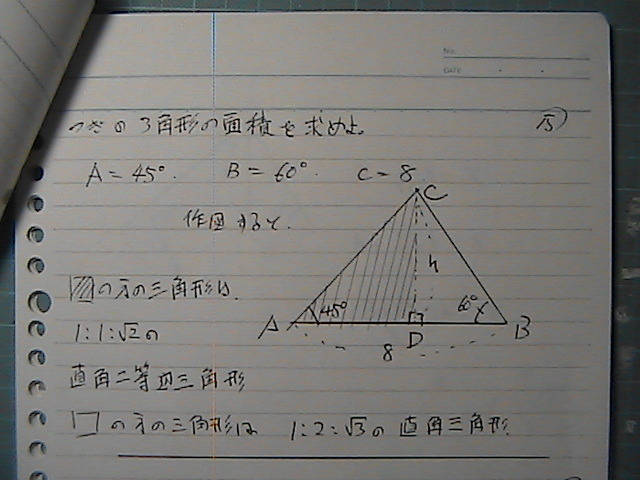 No.
DATE
つぎの3角形の面積を求めよ。
A=45°. B=60°. C=8.
作図すると.
C
h
45°
60°
A
D
B
8
の方の三角形は.
1:1:√2の
直角二等辺三角形
の方の三角形は 1:2:√3の直角三角形.